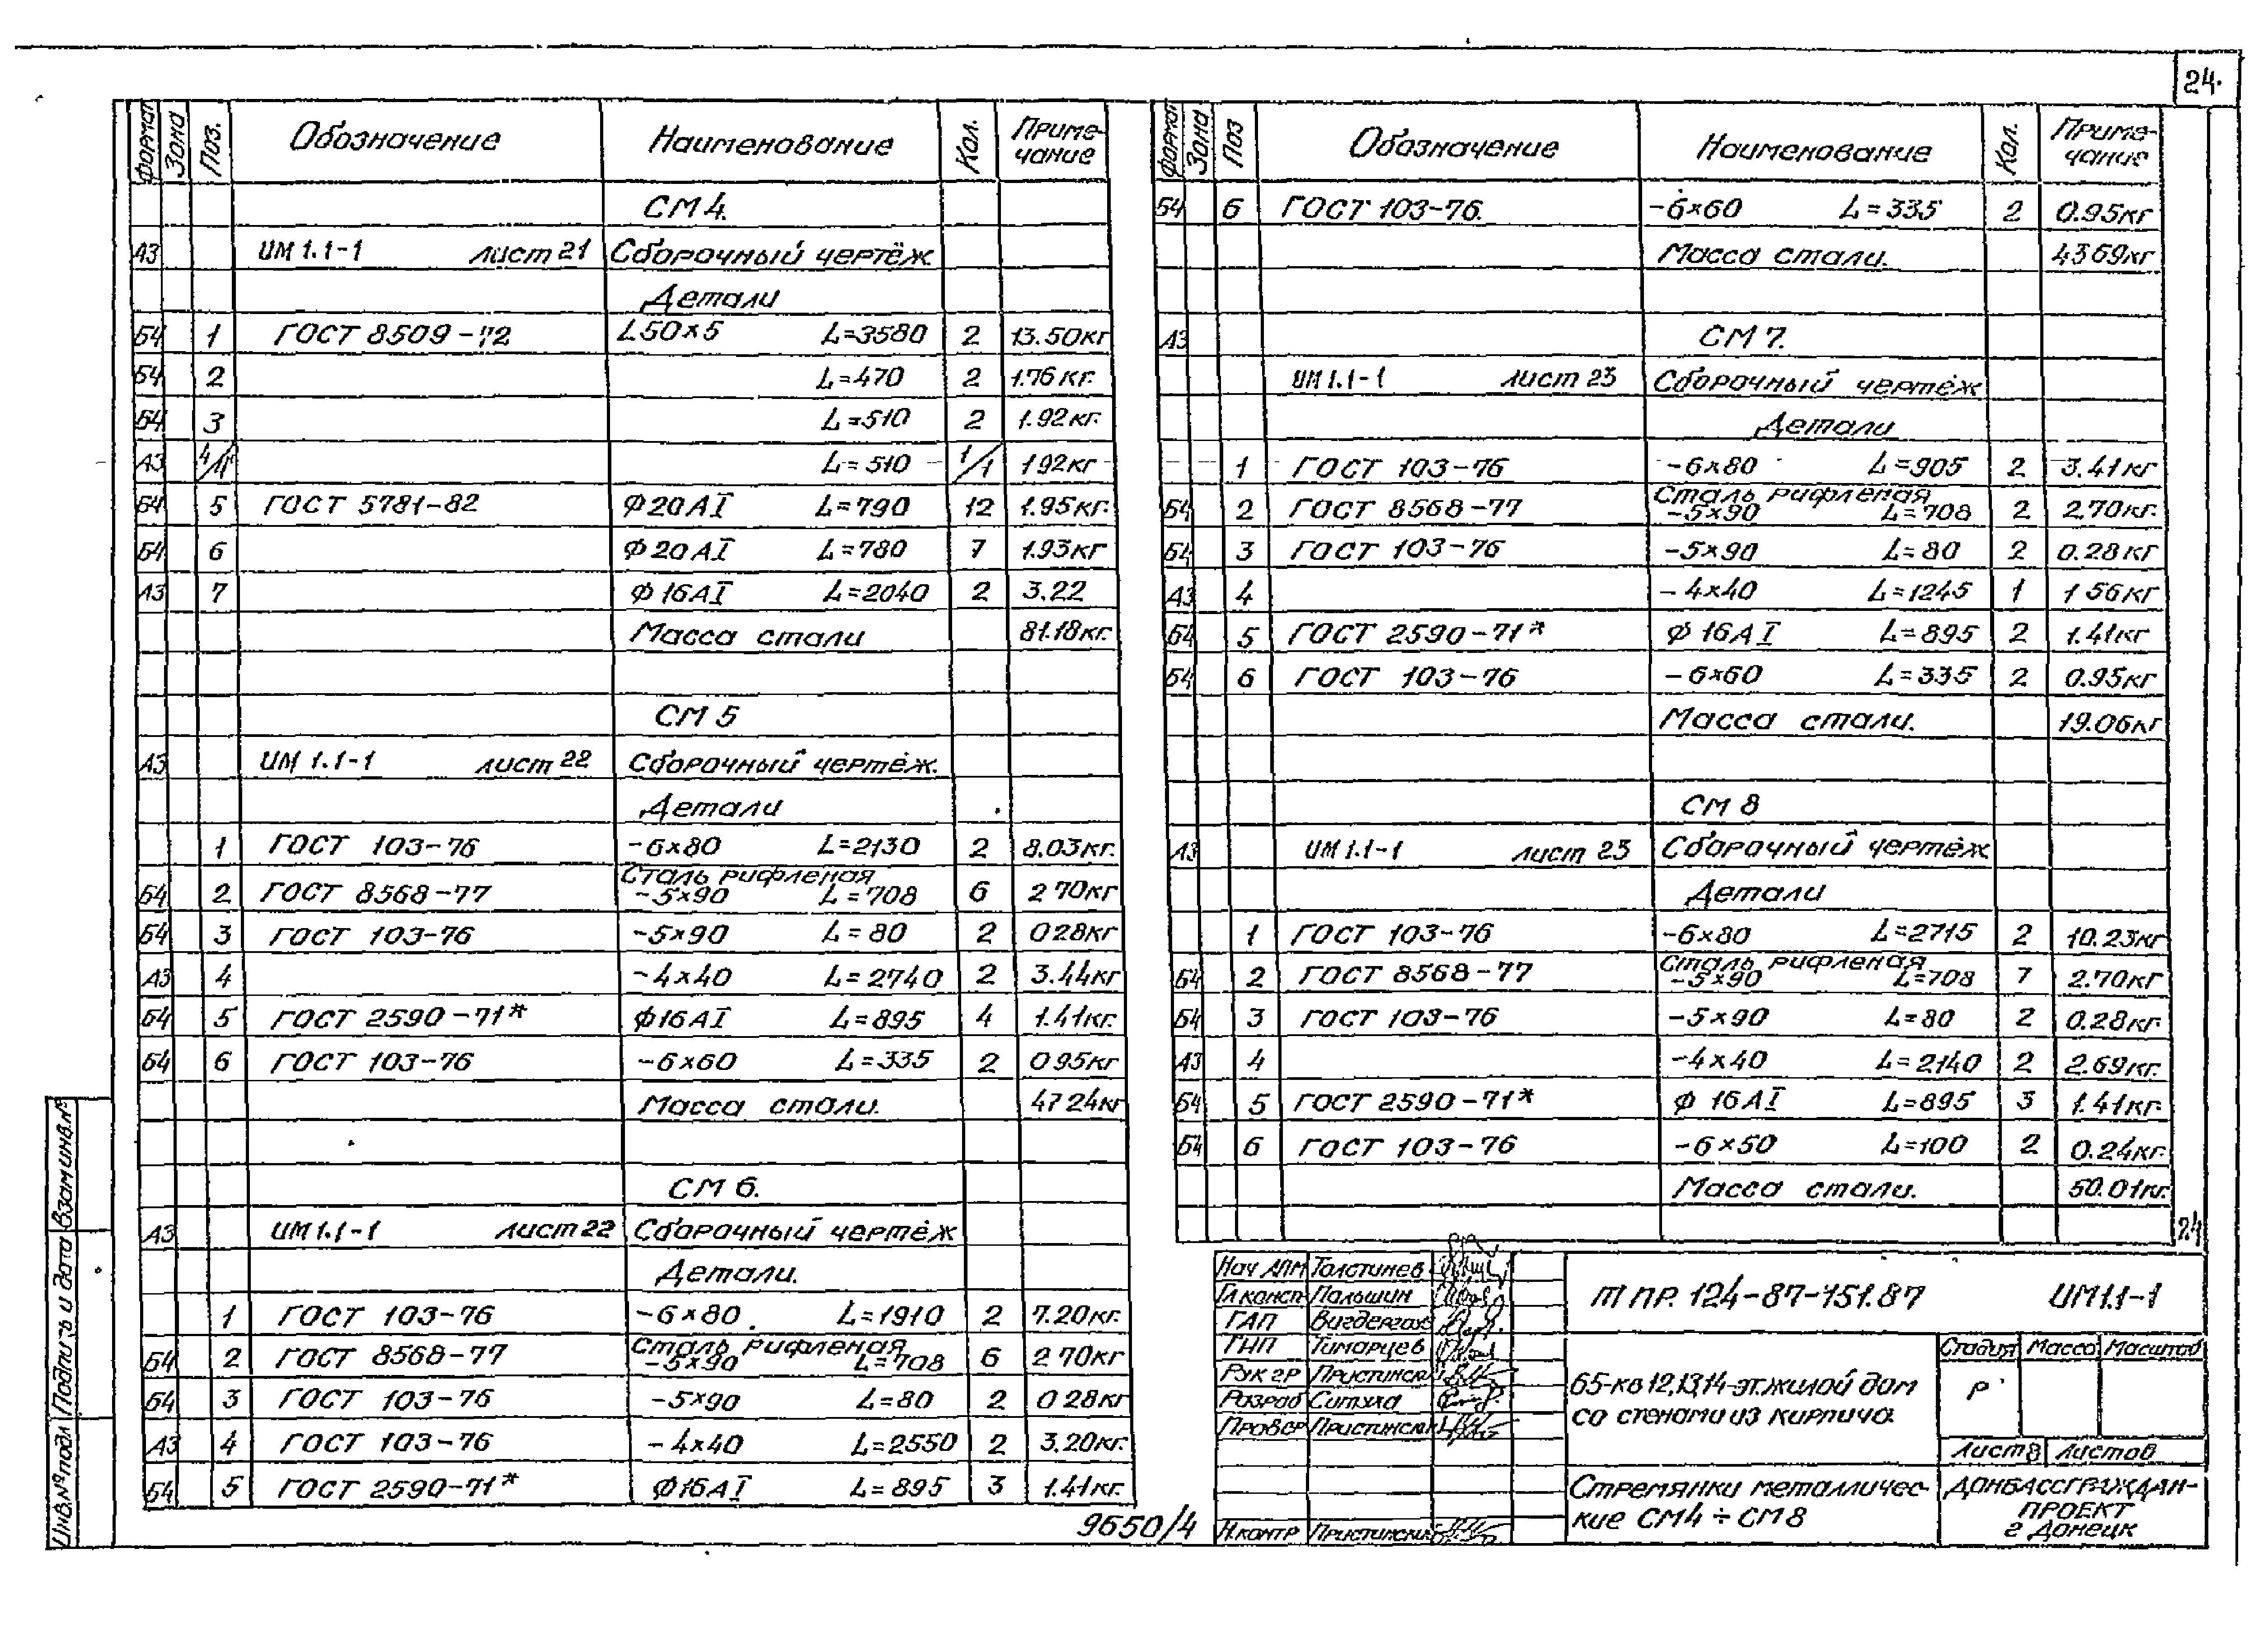 24.
Формат Зона Поз. Обозначение Наименование Кол. Приме-чание
СМ 4.
А3 ИМ 1.1-1 лист 21 Сборочный чертёж
Детали
Б4 1 ГОСТ 8509-72 L50×5 L=3580 2 13.50кг
Б4 2 L=470 2 1.76кг.
Б4 3 L=510 2 1.92кг.
А3 4/4' L=510 1/1 192кг
Б4 5 ГОСТ 5781-82 Ф20АI L=790 12 1.95кг.
Б4 6 Ф20АI L=780 7 1.93кг
А3 7 Ф16АI L=2040 2 3.22
Масса стали 81.18кг.
СМ 5
А3 ИМ 1.1-1 лист 22 Сборочный чертёж.
Детали
1 ГОСТ 103-76 -6×80 L=2130 2 8.03кг.
Б4 2 ГОСТ 8568-77 Сталь рифленая -5×90 L=708 6 2 70кг
Б4 3 ГОСТ 103-76 -5×90 L=80 2 028кг
А3 4 -4×40 L=2740 2 3.44кг
Б4 5 ГОСТ 2590-71* Ф16АI L=895 4 1.41кг.
Б4 6 ГОСТ 103-76 -6×60 L=335 2 095кг
Масса стали. 47 24кг
СМ 6.
А3 ИМ 1.1-1 лист 22 Сборочный чертёж
Детали.
1 ГОСТ 103-76 -6×80. L=1910 2 7.20кг.
Б4 2 ГОСТ 8568-77 Сталь рифленая -5×90 L=708 6 2 70кг
Б4 3 ГОСТ 103-76 -5×90 L=80 2 0 28кг
А3 4 ГОСТ 103-76 -4×40 L=2550 2 3.20кг.
Б4 5 ГОСТ 2590-71* Ф16АI L=895 3 1.41кг.
Формат Зона Поз Обозначение Наименование Кол. Приме-чание
Б4 6 ГОСТ 103-76. -6×60 L=335 2 0.95кг
Масса стали. 4369кг
А3 СМ 7.
ИМ 1.1-1 лист 23 Сборочный чертёж
Детали
1 ГОСТ 103-76 -6×80 L=905 2 3.41кг
Б4 2 ГОСТ 8568-77 Сталь рифленая -5×90 L=708 2 2.70кг.
Б4 3 ГОСТ 103-76 -5×90 L=80 2 0.28кг
А3 4 -4×40 L=1245 1 1 56кг
Б4 5 ГОСТ 2590-71* Ф 16АI L=895 2 1.41кг
Б4 6 ГОСТ 103-76 -6×60 L=335 2 0.95кг
Масса стали. 19.06кг
СМ 8
А3 ИМ 1.1-1 лист 23 Сборочный чертёж
Детали
1 ГОСТ 103-76 -6×80 L=2715 2 10.23кг
Б4 2 ГОСТ 8568-77 Сталь рифленая -5×90 L=708 7 2.70кг
Б4 3 ГОСТ 103-76 -5×90 L=80 2 0.28кг.
А3 4 -4×40 L=2140 2 2.69кг.
Б4 5 ГОСТ 2590-71* Ф 16АI L=895 3 1.41кг.
Б4 6 ГОСТ 103-76 -6×50 L=100 2 0.24кг.
Масса стали. 50.01кг.
24
Нач АПМ Толстинев
Гл.консп Пальшин
ГАП Вигдергаз
ГИП Тимарцев
Рук гр Пристинск
Разраб Ситуха
Провер Пристинск
Н.контр Пристинска
Т ПР. 124-87-151.87 ИМ1.1-1
65-кв 12,13,14-эт.жилой дом
со стенами из кирпича
Стадия Масса Масштаб
Р
Лист 8 Листов
Стремянки металличес-
кие СМ4 ÷ СМ 8
ДОНБАССГРАЖДАН-
ПРОЕКТ
г Донецк
9650/4
Инв.№подл Подпись и дата Взам инв.№